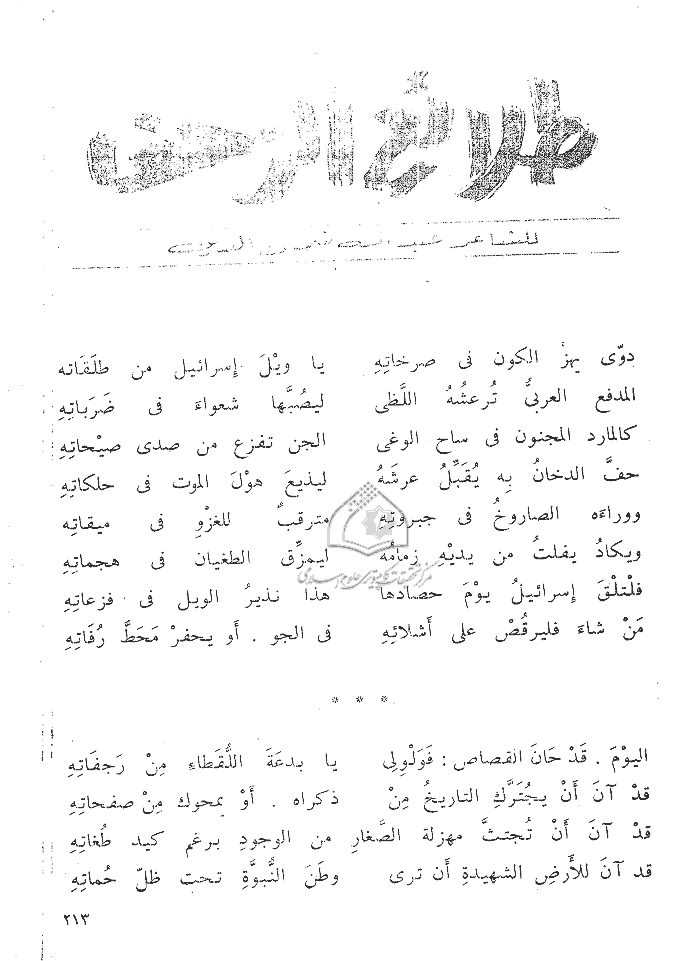 طلائع الزحف
للشاعر
دوّى يهزُّ الكون فى صرخاتِهِ يا ويْلَ إسرائيل من طلَقَاته
المدفع العربىُّ تُرعشُهُ اللَّظى ليصُبَّها شعواءَ فى ضَرَباتِهِ
كالمارد المجنون فى ساح الوغى الجن تفزع من صدى صيْحاتِهِ
حفَّ الدخانُ بِه يُقَبِّلُ عرشَهُ ليذيعَ هوْلَ الموت فى حلكاتِهِ
ووراءَه الصاروخُ فى جبروتِهِ مترقبٌ للغزْوِ فى ميقاتِهِ
ويكادُ يفلتُ من يديْهِ زمامُهُ ليمزِّق الطغيان فى هجماتِهِ
فلْتلْقَ إسرائيلُ يوْمَ حصادها هذا نذيرُ الويل فى فزعاتِهِ
مَنْ شاءَ فليرقُصْ على أشلائِهِ فى الجو . أو يحفرْ مَحَطَّ رُفَاتِهِ
* * *
اليوْمَ . قَدْ حَانَ القصاص : فَوَلْوِلِى يا بدعَةَ اللُّقَطاءِ مِنْ رَجفَاتِهِ
قد آنَ أَنْ يجْتَرَّكِ التاريخُ مِنْ ذكراه . أَوْ يمحوك مِنْ صفحاتِهِ
قدْ آنَ أَنْ تُجتثَّ مهزلة الصَّغارِ من الوجودِ برغم كيد طُغاتِهِ
قد آنَ للأَرضِ الشهيدةِ أن ترى وطَنَ النُّبوَّةِ تحت ظلّ حُماتِهِ
٢١٣
مركز تحقیقات کامپیوتری علوم اسلامی